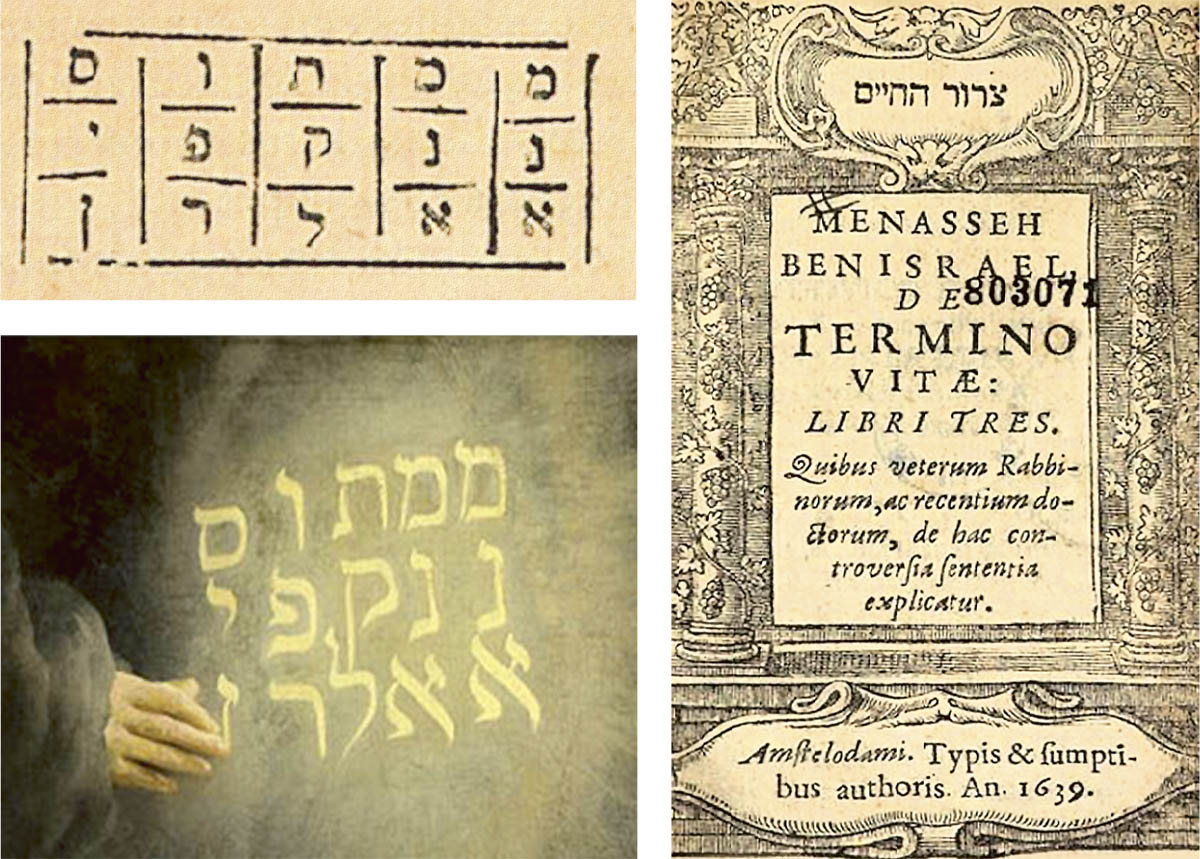 מ מ ת ו ס
נ נ ק פ י
א א ל ר ן
ממתוס
ננקפי
אאלרז
צרור החיים
MENASSEH
BEN ISRAEL,
DE
803071
TERMINO
VITÆ:
LIBRI TRES.
Quibus veterum Rabbi-
norum, ac recentium do-
ctorum, de hac con-
troversia sententia
explicatur.
Amstelodami. Typis & sumpti-
bus authoris. An. 1639.